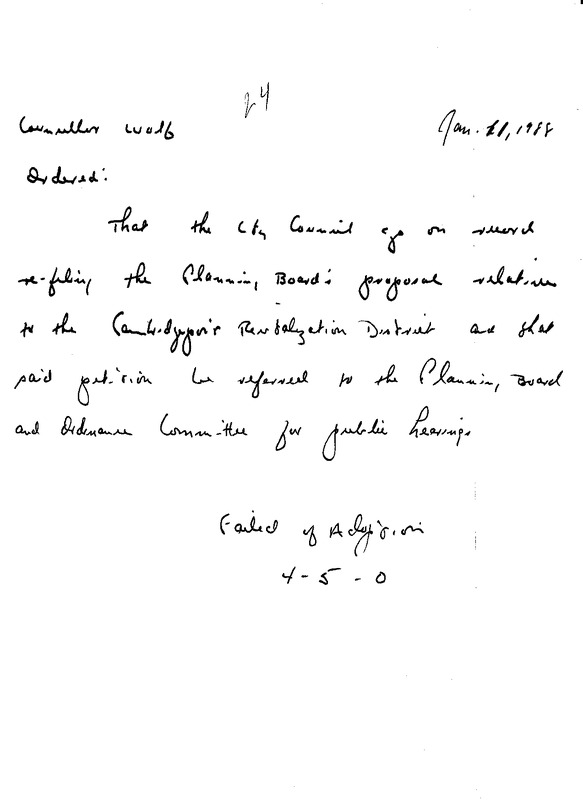 24
Councillor Wolf Jan. 21, 1988
Ordered:
That the City Council go on record
re-filing the Planning Board's proposal relative
to the Cambridgeport Revitalization District and that
said petition be referred to the Planning Board
and Ordinance Committee for public hearings
Failed of Adoption
4-5-0